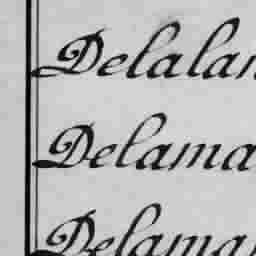 Delalan
Delama
Delamar